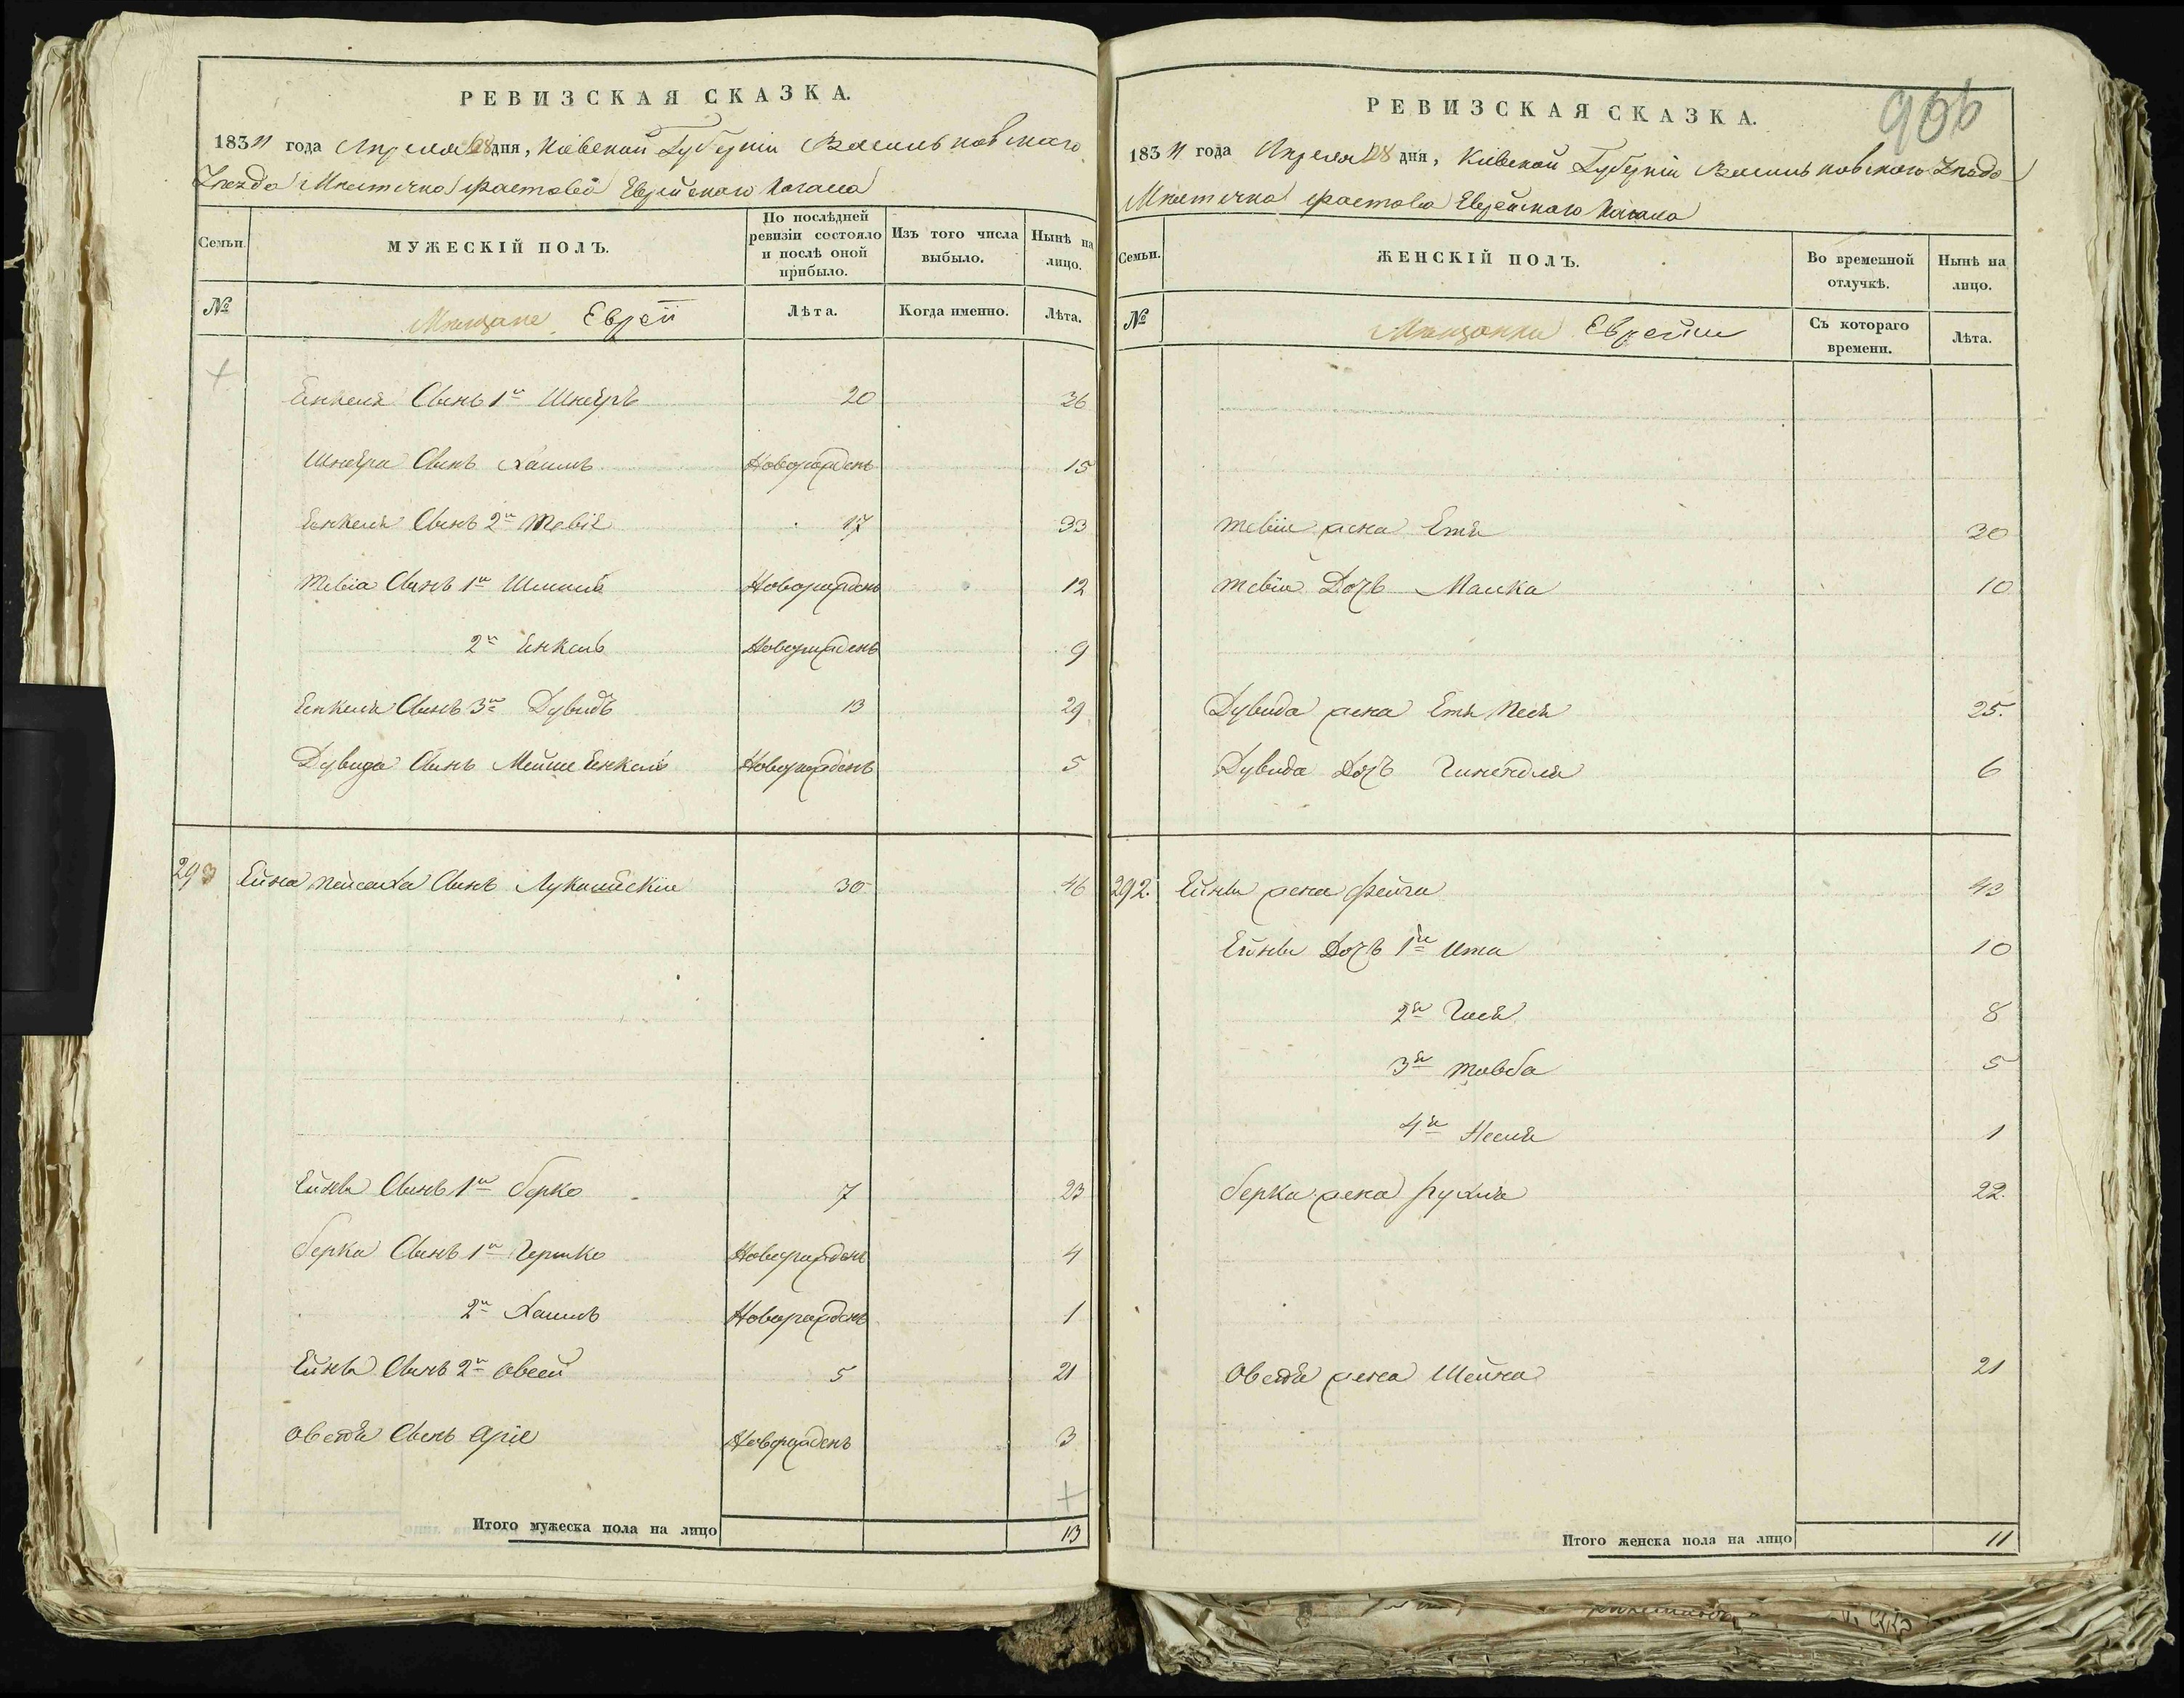 РЕВИЗСКАЯ СКАЗКА.
1834 года Апреля 28 дня, Кіевской Губерніи Васильковскаго
Уезда Местечка Фастова Еврейскаго Кагала
Семьи.
МУЖЕСКІЙ ПОЛЪ.
По послѣдней ревизіи состояло и послѣ оной прибыло.
Изъ того числа выбыло.
Нынѣ на лицо.
№
Мещане Евреи
Лѣта.
Когда именно.
Лѣта.
Енкеля Сынъ 1й Шнеуръ 20 36
Шнеура Сынъ Хаимъ Новорожденъ 15
Енкеля Сынъ 2й Тевіе 17 33
Тевіа Сынъ 1й Новорожденъ 12
2й Енкель Новорожденъ 9
Енкеля Сынъ 3й Дувидъ 13 29
Дувида Сынъ Мейше Енкель Новорожденъ 5
293 Ейна Пейсаха Сынъ 30 46
Ейны Сынъ 1й Берко 7 23
Берка Сынъ 1й Гершко Новорожденъ 4
2й Хаимъ Новорожденъ 1
Ейны Сынъ 2й Овсей 5 21
Овсея Сынъ Аріе Новорожденъ 3
Итого мужеска пола на лицо 13
906
РЕВИЗСКАЯ СКАЗКА.
1834 года Апреля 28 дня, Кіевской Губерніи Васильковскаго Уезда
Местечка Фастова Еврейскаго Кагала
Семьи.
ЖЕНСКІЙ ПОЛЪ.
Во временной отлучкѣ.
Нынѣ на лицо.
№
Мещанки Еврейки
Съ котораго времени.
Лѣта.
Тевіи жена Етя 30
Тевіи Дочь Малка 10
Дувида жена Етя Песя 25.
Дувида Дочь Гинендля 6
292. Ейны жена Фейга 43
Ейны Дочь 1я Ита 10
2я Гися 8
3я Товба 5
4я 1
Берка жена Рухля 22.
Овсея жена Шейна 21
Итого женска пола на лицо 11